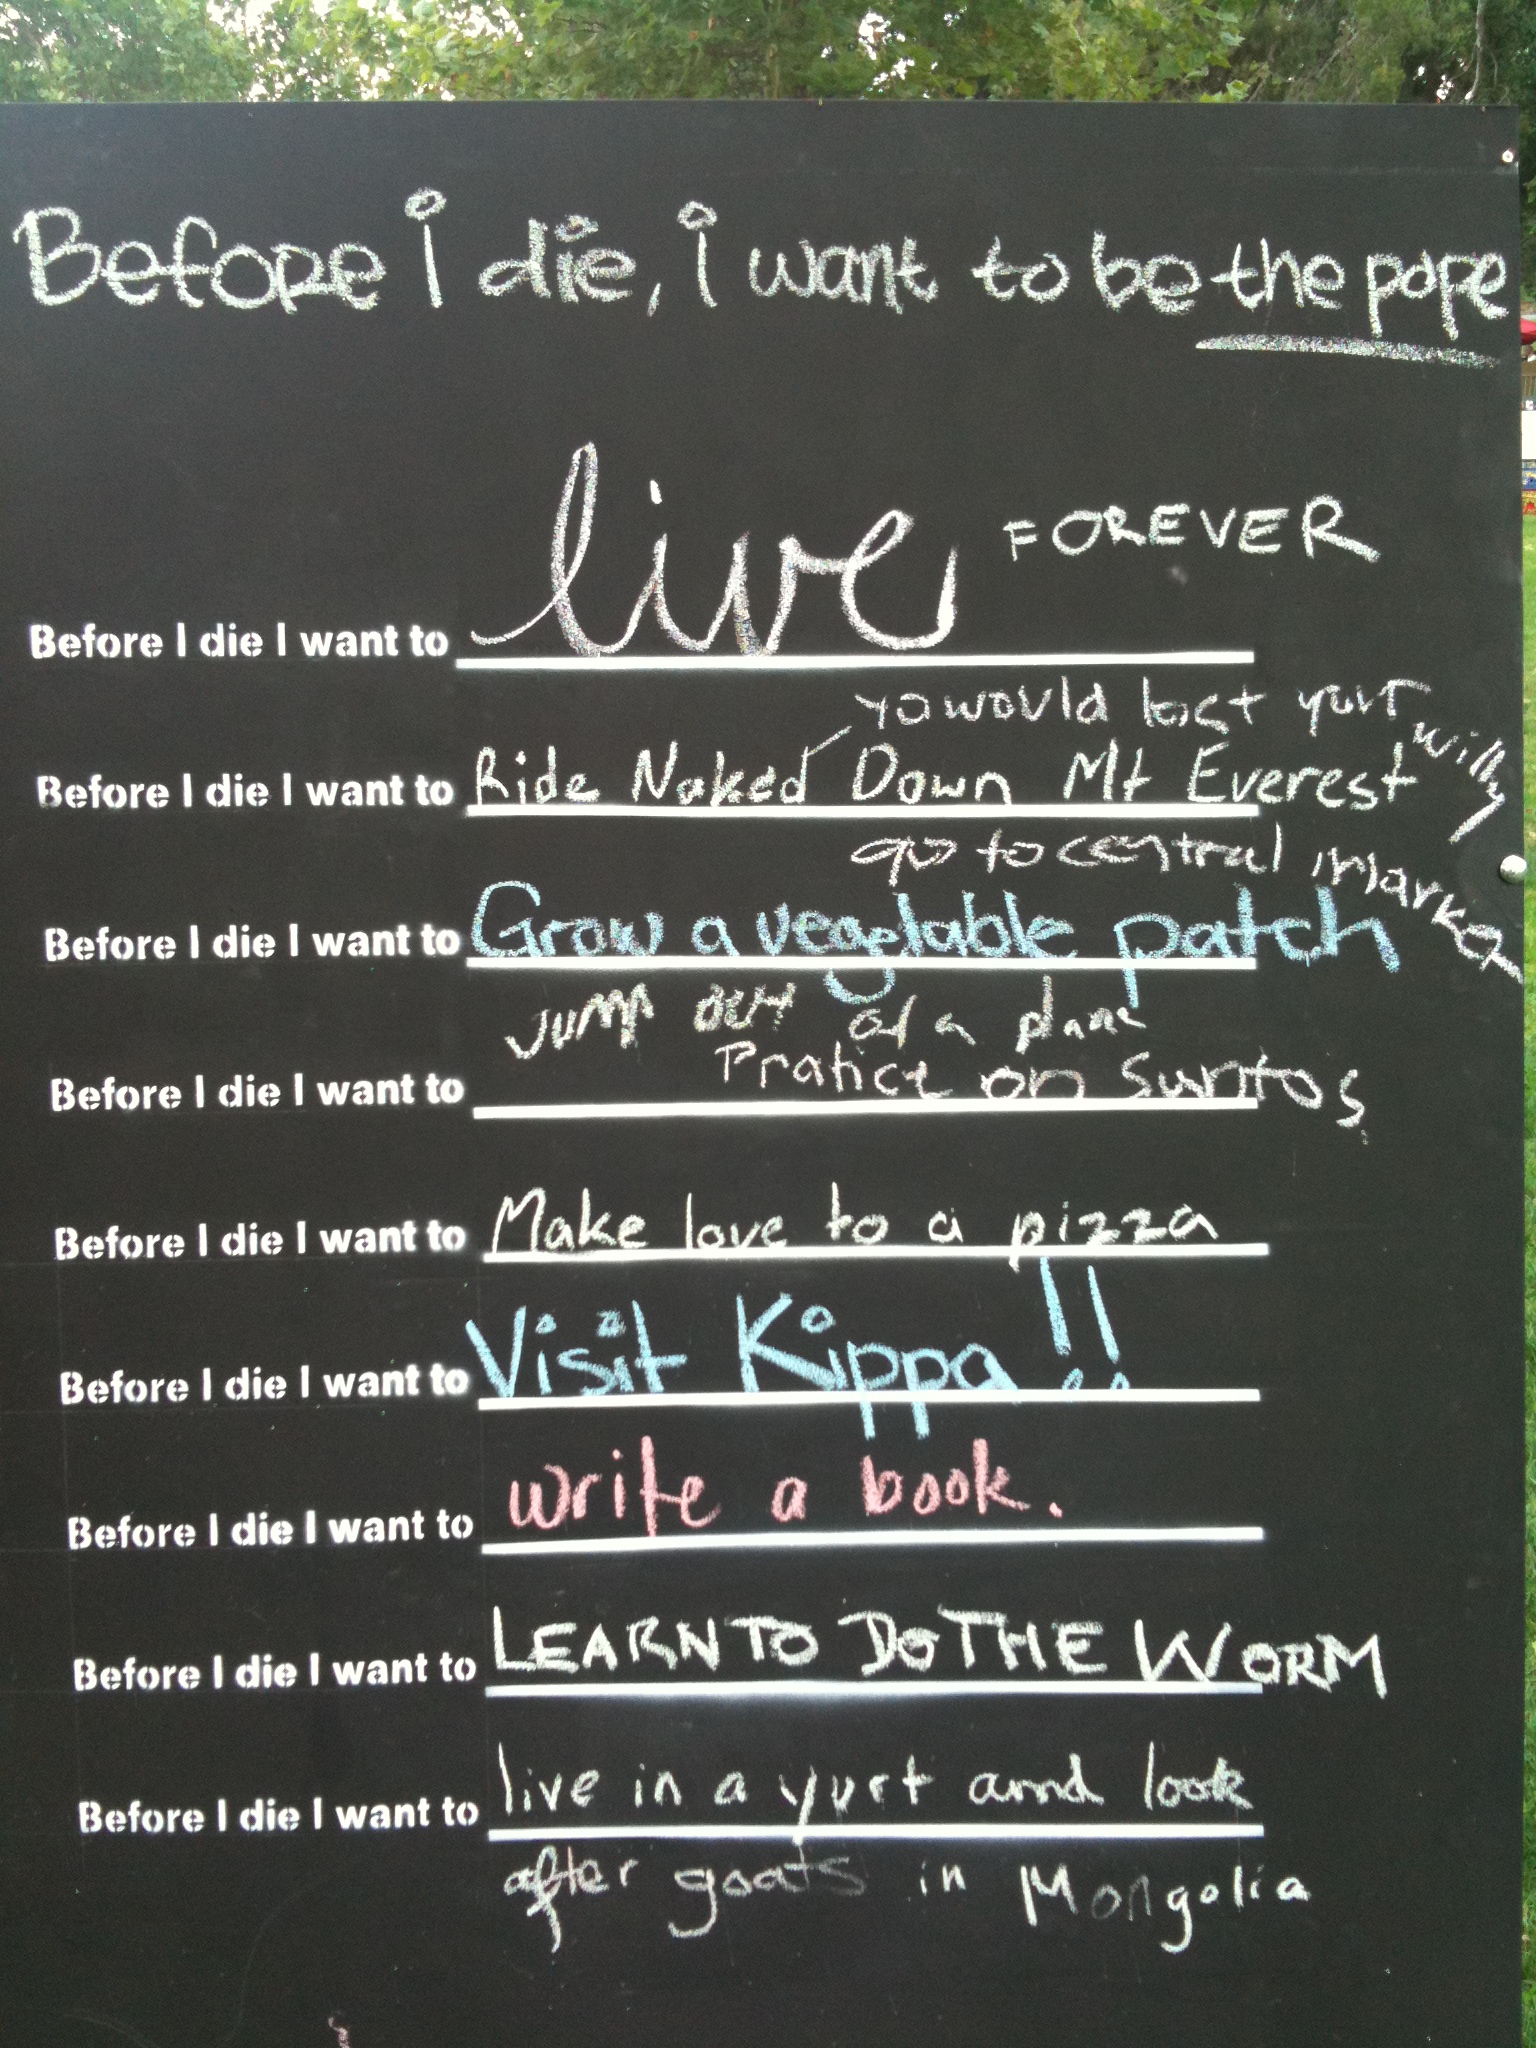 Before i die, i want to be the pope
live FOREVER
Before I die I want to
yo would lost your willy
Before I die I want to Ride Naked Down Mt Everest
go to central market
Before I die I want to Grow a vegetable patch
JUMP OUT of a plane
Pratice on
Before I die I want to
Before I die I want to Make love to a pizza
Before I die I want to Visit Kippa!!
Before I die I want to write a book.
Before I die I want to LEARN TO DO THE WORM
Before I die I want to live in a yurt and look
after goats in Mongolia